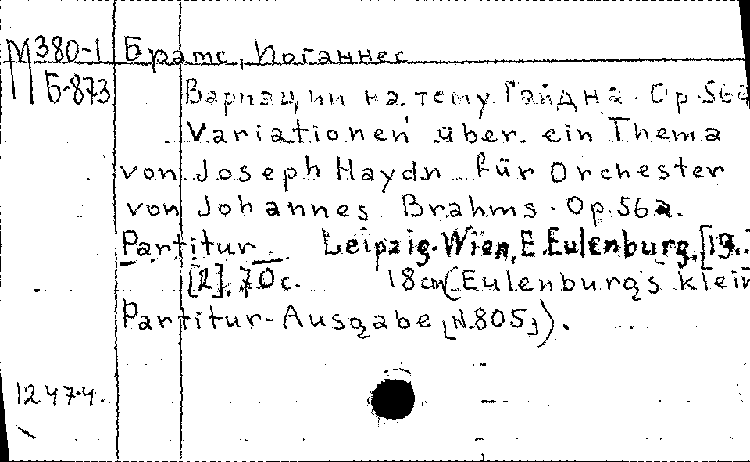 М380-1 Брамс, Иоганнес
Б-873 Вариации на тему Гайдна. Op.56a
Variationen über ein Thema
von Joseph Haydn für Orchester
von Johannes Brahms. Op.56a.
Partitur. Leipzig-Wien, E.Eulenburg, [19..
[2], 70c. 18cm (Eulenburgs klein
Partitur-Ausgabe [N.805]).
12474.